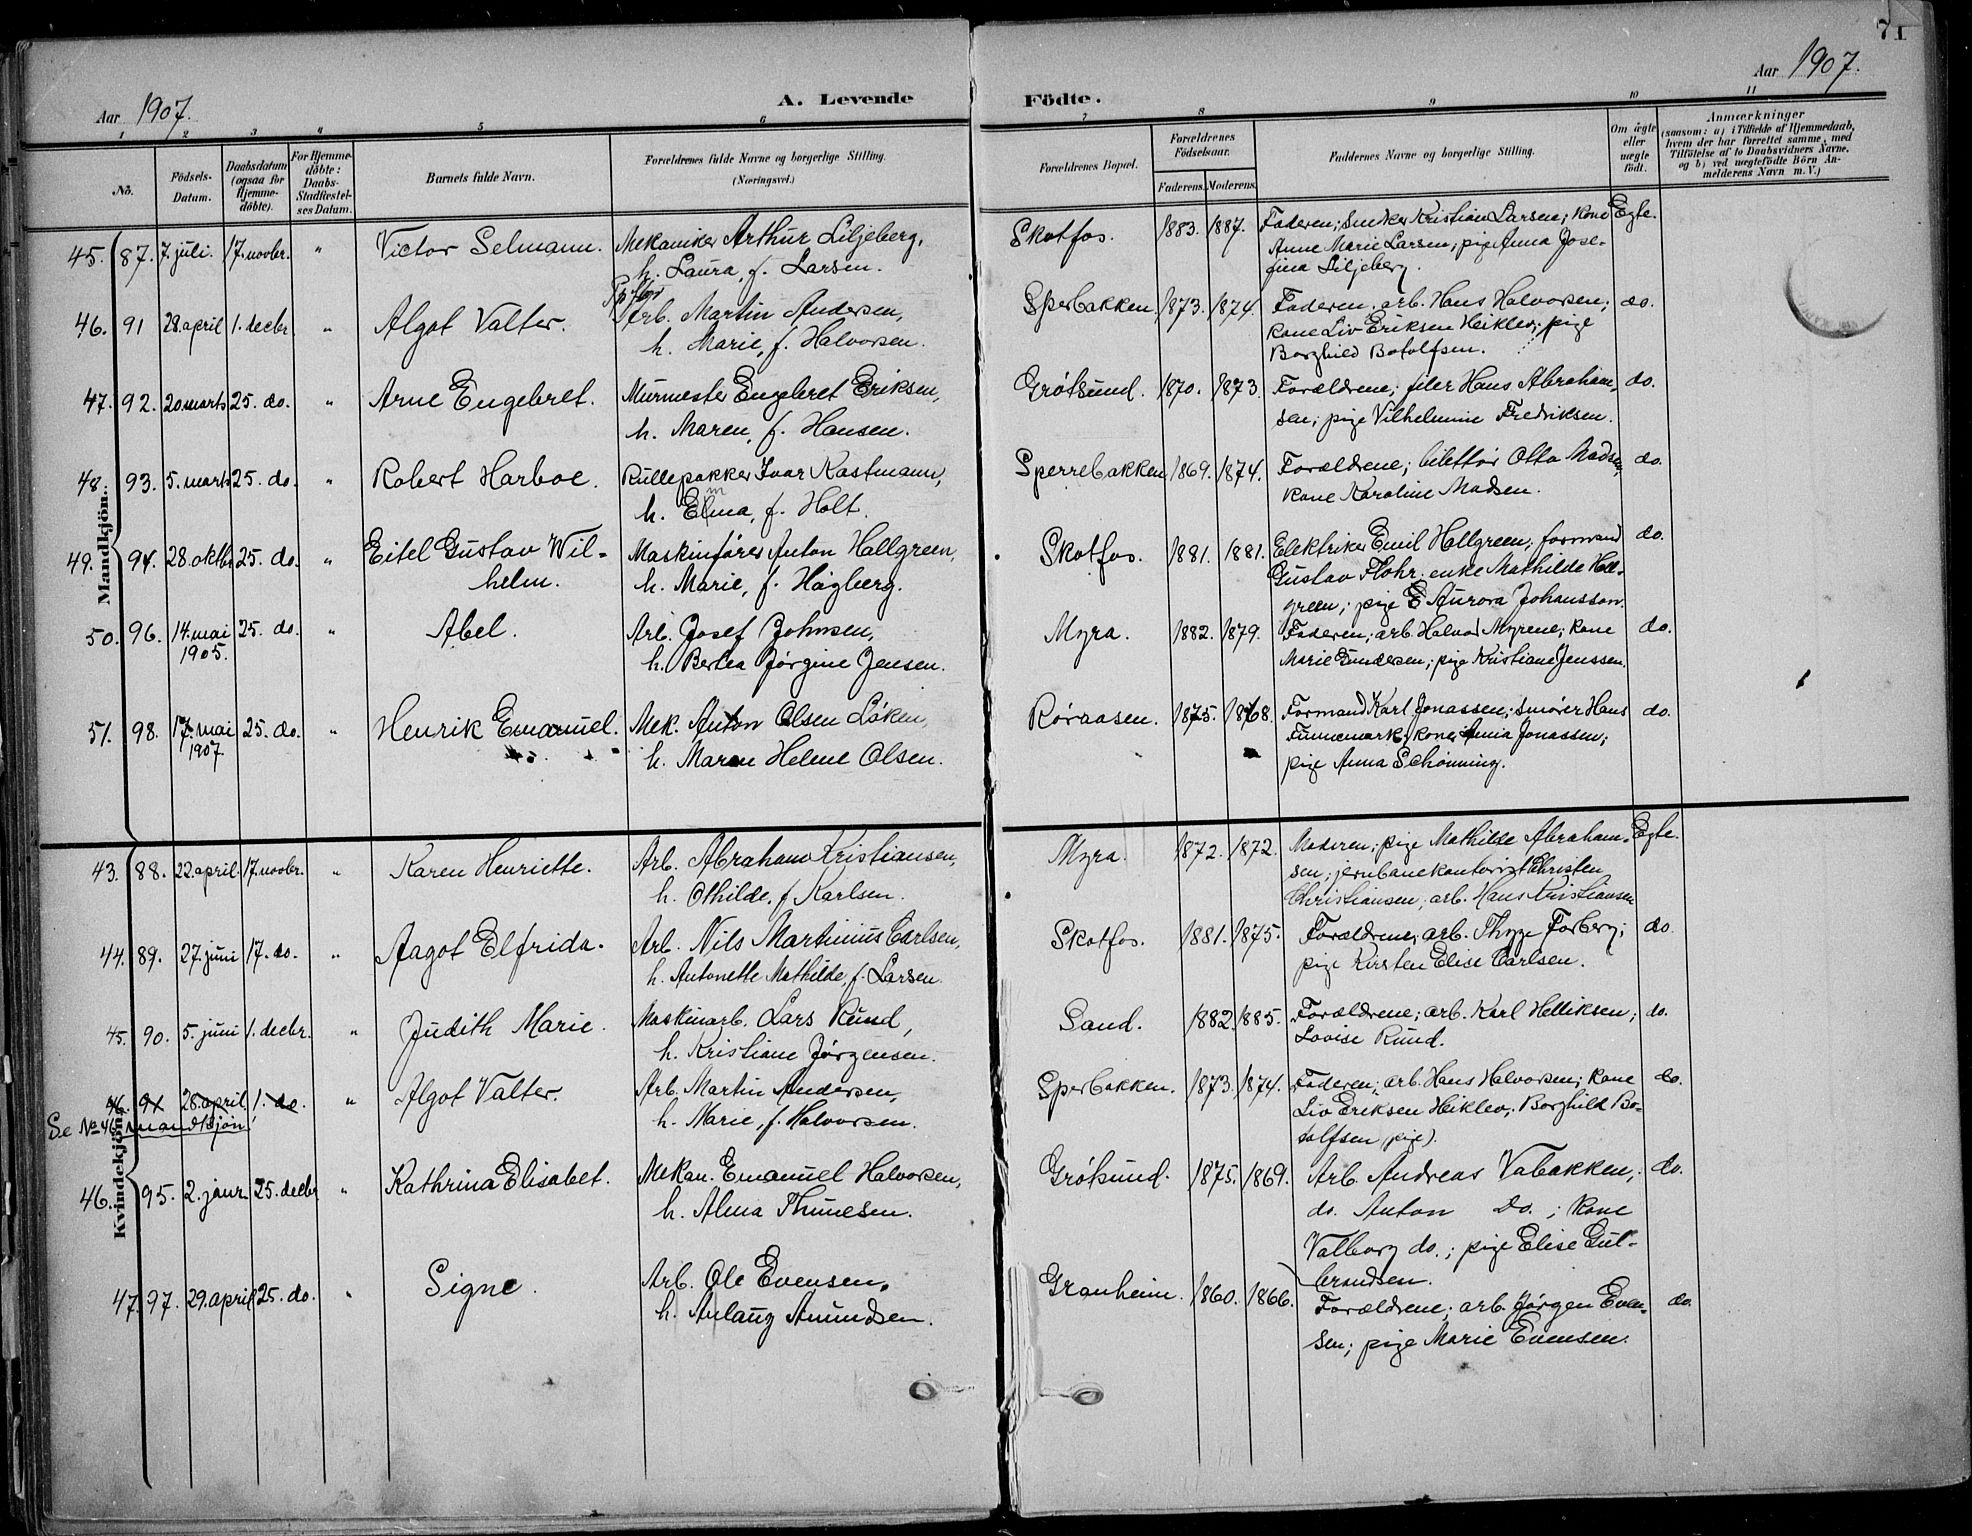 71
Aar 1907.
A. Levende
Födte.
Aar 1907.
1 2 3 4 5 6 7 8 9 10 11
No.
Födsels-
Datum.
Daabsdatum
(ogsaa for
Hjemme-
döbte).
For Hjemme-
döbte:
Daabs-
Stadfæstel-
ses Datum.
Barnets fulde Navn.
Forældrenes fulde Navne og borgerlige Stilling.
(Næringsvei.)
Forældrenes Bopæl.
Forældrenes
Födselsaar.
Faderens. Moderens.
Faddernes Navne og borgerlige Stilling.
Om ægte
eller
uægte
födt.
Anmærkninger
(saasom: a) i Tilfælde af Hjemmedaab,
hvem der har forrettet samme, med
Tilföielse af to Daabsvidners Navne.
og b) ved uægtefödte Börn An-
melderens Navn m. V.)
Mandkjön.
45. 87. 7. juli. 17. novbr. " Victor Selmann. Mekaniker Arthur Liljeberg, Skotfos. 1883. 1887. Faderen; Snedker Kristian Larsen; kone Egte.
h. Laura, f. Larsen. Anne Marie Larsen; pige Anna Jose-
fina Liljeberg.
46. 91 28. april 1. decbr " Algot Valter. Arb. Martin Andersen, Sperbakken. 1873. 1874. Faderen; arb. Hans Halvorsen; do.
h. Marie, f. Halvorsen. kone Liv Eriksen Heiklev; pige
Borghild Botolfsen.
47. 92. 20 marts 25. do. " Arne Engebret. Murmester Engebret Eriksen, Grötsund. 1870. 1873. Forældrene; filer Hans Abraham- do.
h. Maren, f. Hansen. sen; pige Vilhelmine Fredriksen.
48. 93. 5. marts 25. do. " Robert Harboe. Rullepakker Ivar Kastmann, Sperrebakken 1869. 1874. Forældrene; billettör Otto Madsen, do.
h. Elma, f. Holt. kone Karoline Madsen.
49. 94. 28. oktbr 25. do. " Eitel Gustav Wil- Maskinförer Anton Hallgreen, Skotfos. 1881. 1881. Elektriker Emil Hallgreen; formand do.
helm. h. Marie, f. Högberg. Gustav Flohr. enke Mathilde Hall-
green; pige E Aurora Johansson.
50. 96. 14. mai 25. do. " Abel. Arb. Josef Johnsen, Myra. 1882. 1879. Faderen; arb. Halvor Myrene; kone do.
1905. h. Bertea Jörgine Jensen. Marie Gundersen; pige Kristiane Jenssen.
51. 98. 17. mai 25. do. " Henrik Emanuel. Mek. Anton Olsen Löken, Röraasen. 1875. 1868. Formand Karl Jonassen; smörer Hans do.
1907. h. Maren Helene Olsen. Finnemark; kone Jonassen;
pige Anna Schönning.
Kvindekjön.
43. 88. 22. april. 17. novbr. " Karen Henriette. Arb. Abraham Kristiansen, Myra. 1872. 1872. Moderen; pige Mathilde Abraham- Egte.
h. Othilde, f. Karlsen. sen; jernbanekontorist Christen
Christiansen; arb. Hans Kristiansen
44. 89. 27. juni 17. do. " Aagot Elfrida. Arb. Nils Martinius Carlsen, Skotfos. 1881. 1875. Forældrene; arb. Thyge Forberg; do.
h. Antonette Mathilde, f. Larsen. pige Kirsten Elise Carlsen.
45. 90. 5. juni 1. decbr. " Judith Marie. Maskinarb. Lars Rund, Sand. 1882. 1885. Forældrene; arb. Karl Helliksen; do.
h. Kristiane Jörgensen. Lovise Rund.
46. 91 28. april 1. do. " Algot Valter. Arb. Martin Andersen, Sperbakken. 1873. 1874. Faderen; arb. Hans Halvorsen; kone do.
Se No 46 mandkjön! h. Marie, f. Halvorsen. Liv Eriksen Heiklev; Borghild Bo-
tolfsen (pige).
46. 95. 2. janr. 25. decbr " Kathrina Elisabet. Mekan. Emanuel Halvorsen, Grötsund. 1875. 1869. Arb. Andreas Vabakken; do.
h. Alma Thunesen. do. Anton Do.; kone
Valborg do.; pige Elise Gul-
brandsen.
47. 97. 29. april 25. do. " Signe. Arb. Ole Evensen, Granheim. 1860. 1866. Forældrene; arb. Jörgen Even- do.
h. Anlaug Amundsen. sen; pige Marie Evensen.